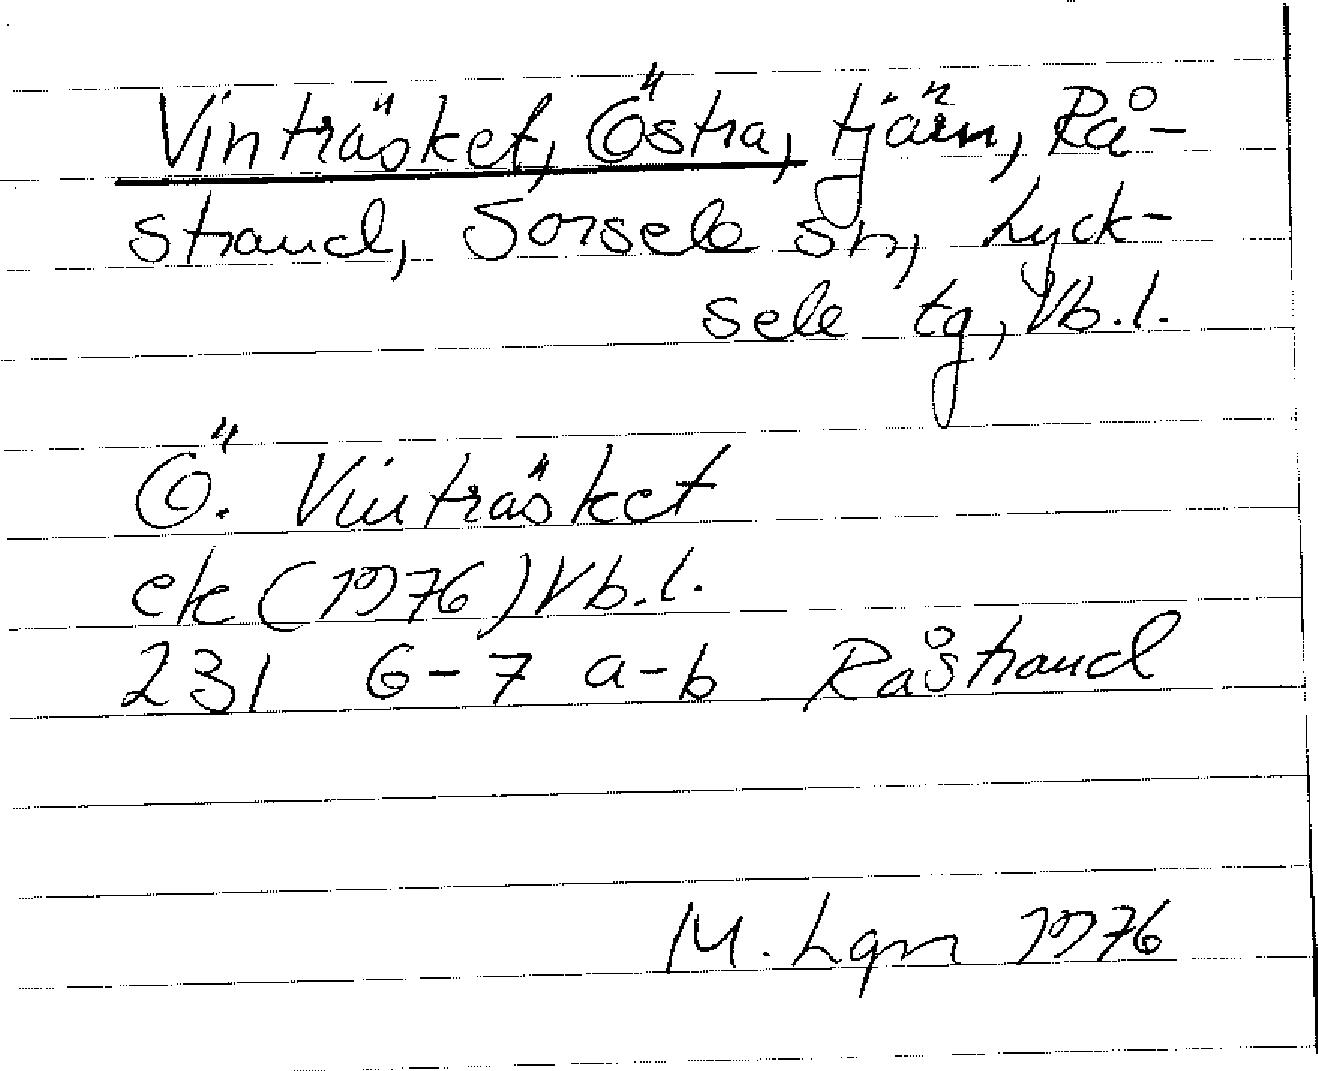 Vinträsket, Östra, tjärn, Rå-
strand, Sorsele sn, Lyck-
sele tg, Vb.l.
Ö. Vinträsket
ek (1976) Vb.l.
231 6-7 a-b Råstrand
M. Lgm 1976